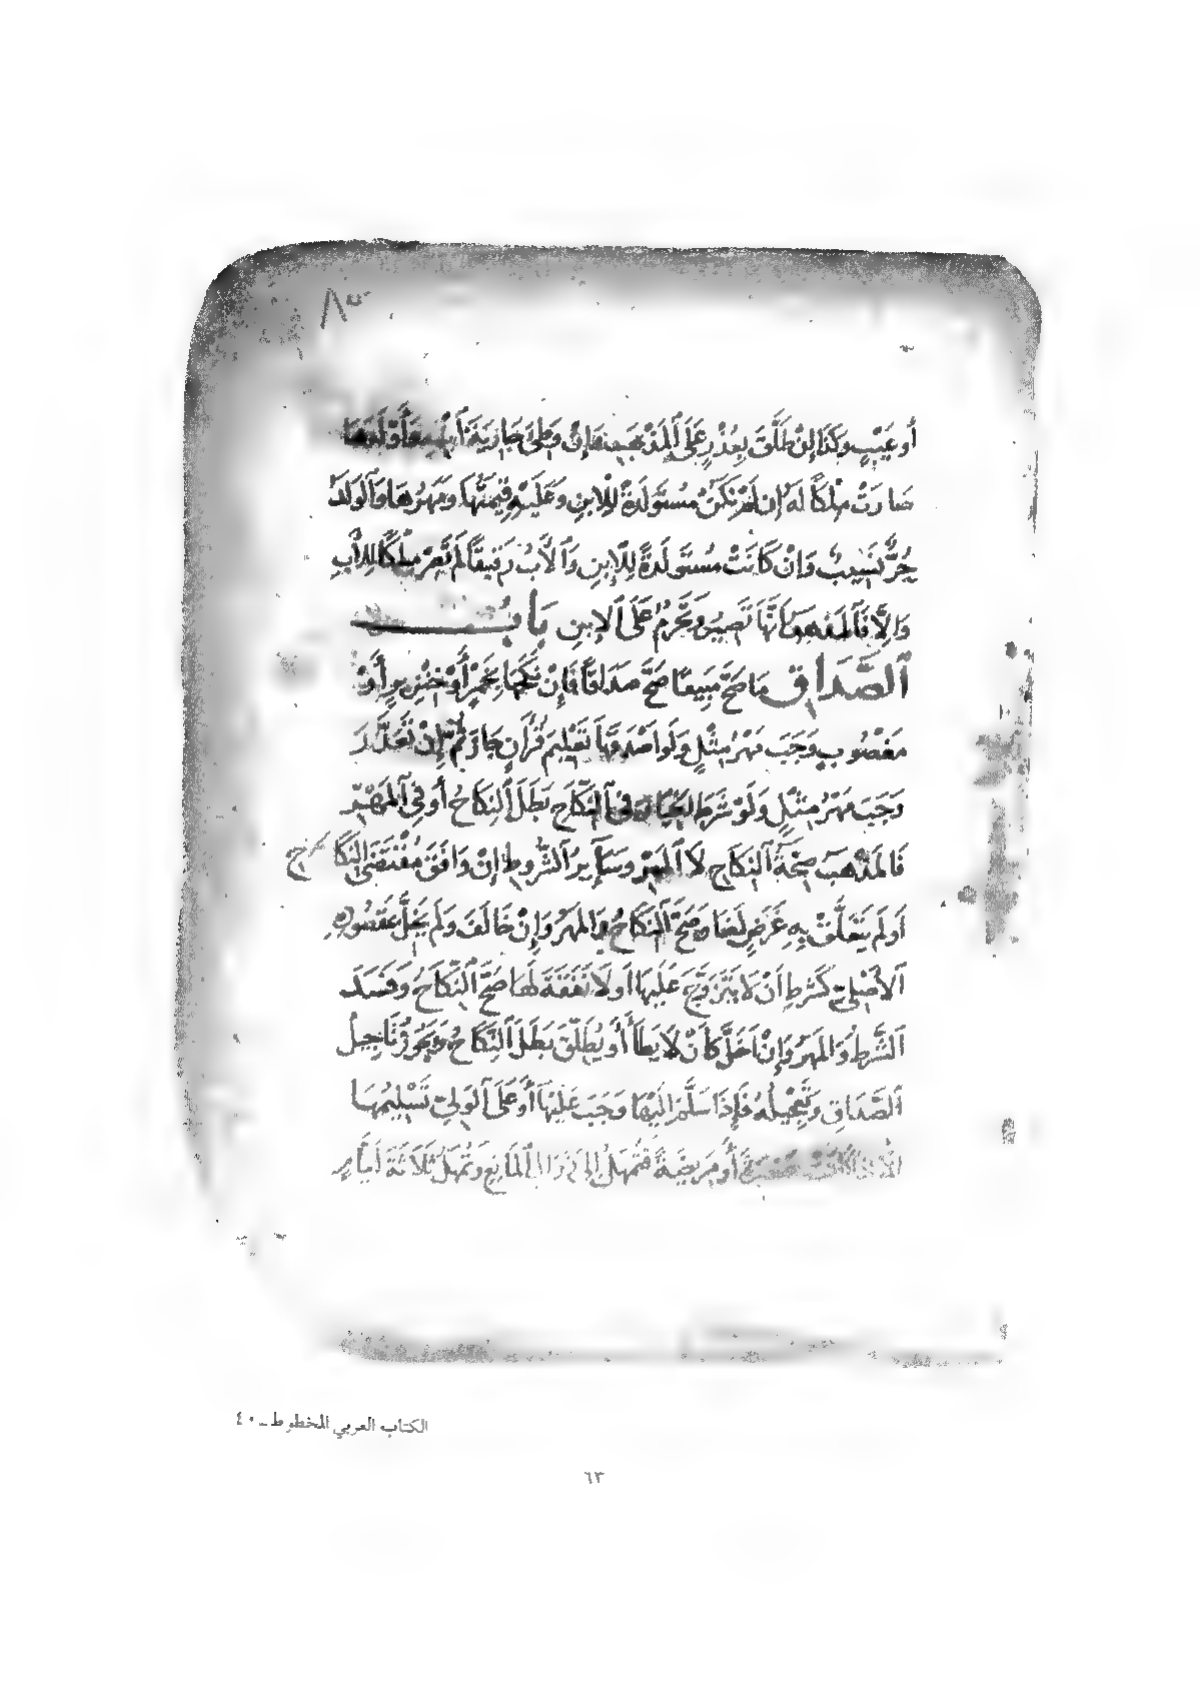 ٨٣
أو عَيْبٍ وكَذا إن طَلَّقَ بِعُذْرٍ عَلَى ٱلمَذْهَبِ فَإنْ وَطِئَ جَارِيَةَ ٱبْنِهِ وَأَوْلَدَهَا
صَارَتْ مِلْكًا لَهُ إن لَمْ تَكُنْ مُسْتَوْلَدَةً لِلْابنِ وَعَلَيْهِ قِيمَتُهَا ومَهرُهَا وَٱلوَلَدُ
حُرٌّ نَسِيبٌ وَإنْ كَانَتْ مُسْتَوْلَدةً لِلْابنِ وَٱلْأبُ رَقِيقًا لَم تَصِرْ مِلكًا لِلْأَبِ
وَإلَّا فَٱلمَذْهَبُ أَنَّهَا تَصِيرُ وَتَحْرُمُ عَلَى ٱلابنِ بَابُ
ٱلصَّدَاقِ مَا صَحَّ مَبِيعًا صَحَّ صَدَاقًا فَإنْ نَكَحَهَا بِخَمْرٍ أَوْ خِنْزِيرٍ أَوْ
مَغْصُوبٍ وَجَبَ مَهْرُ مِثْلٍ وَلَو أَصْدَقَهَا تَعْلِيمَ قُرْآنٍ جَازَ ثُمَّ إنْ تَعَذَّرَ
وَجَبَ مَهْرُ مِثْلٍ وَلَوْ شَرَطَ الخِيَارَ فِى ٱلنِّكَاحِ بَطَلَ ٱلنِّكَاحُ أَو فِى ٱلمَهْرِ
فَالمَذْهَبُ صِحَّةُ ٱلنِّكَاحِ لَا ٱلمَهْرِ وَسَائِرُ ٱلشُّرُوطِ إنْ وَافَقَ مُقْتَضَى النِّكَاحِ
أَو لَم يَتَعَلَّقْ بِهِ غَرَضٌ لَغَا وَصَحَّ ٱلنِّكَاحُ وَالمَهْرُ وَإنْ خَالَفَ وَلَم يُخِلَّ بِمَقْصُودِهِ
ٱلْأَصْلِىِّ كَشَرطِ أَنْ لَا يَتَزَوَّجَ عَلَيهَا أَو لَا نَفَقَةَ لَهَا صَحَّ ٱلنِّكَاحُ وَفَسَدَ
ٱلشَّرطُ وَالمَهرُ وَإنْ أَخَلَّ كَأَنْ لَا يَطَأَ أَو يُطَلِّقَ بَطَلَ ٱلنِّكَاحُ وَيَجُوزُ تَاجِيلُ
ٱلصَّدَاقِ وَتَعْجِيلُهُ فَإذَا سَلَّمَ الَيْهَا وَجَبَ عَلَيْهَا أَو عَلَى ٱلوَلِىِّ تَسْلِيمُهَا
إلَّا إذَا كَانَتْ صَغِيرَةً أَو مَرِيضَةً فَتُمْهَلُ إلى زَوَالِ ٱلمَانِعِ وَتُمْهَلُ ثَلَاثَةَ أَيَّامٍ
الكتاب العربي المخطوط ـ ٤٠
٦٣